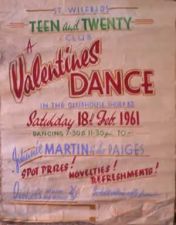 ST. WILFRIDS
TEEN AND TWENTY
CLUB
A
Valentines
DANCE
IN THE CLUBHOUSE
Saturday 18th Feb 1961
DANCING 7.30 & 11.30 p.m. TO
Johnnie MARTIN & the PAIGES
SPOT PRIZES! NOVELTIES!
REFRESHMENTS!